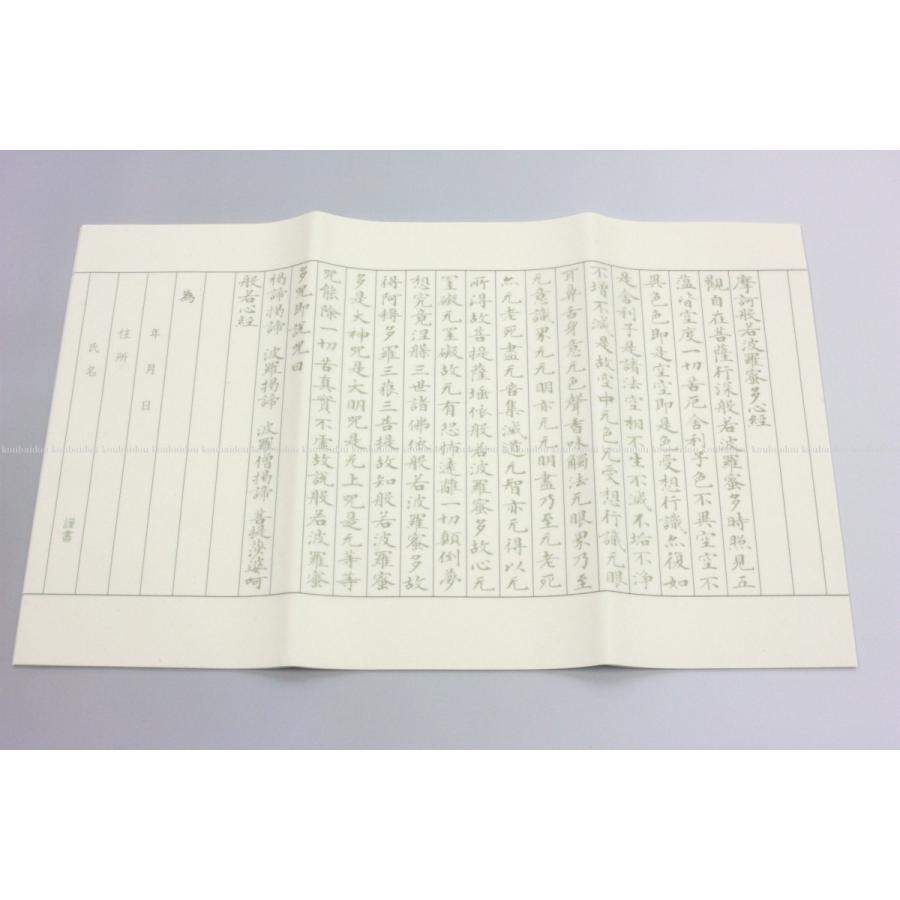 摩訶般若波羅蜜多心経
觀自在菩薩行深般若波羅蜜多時照見五
蘊皆空度一切苦厄舎利子色不異空空不
異色色即是空空即是色受想行識亦復如
是舎利子是諸法空相不生不滅不垢不淨
不増不減是故空中无色无受想行識无眼
耳鼻舌身意无色聲香味觸法无眼界乃至
无意識界无无明亦无无明盡乃至无老死
亦无老死盡无苦集滅道无智亦无得以无
所得故菩提薩埵依般若波羅蜜多故心无
罣礙无罣礙故无有恐怖遠離一切顛倒夢
想究竟涅槃三世諸佛依般若波羅蜜多故
得阿耨多羅三藐三菩提故知般若波羅蜜
多是大神咒是大明咒是无上咒是无等等
咒能除一切苦真實不虚故説般若波羅蜜
多咒即説咒曰
揭諦揭諦 波羅揭諦 波羅僧揭諦 菩提莎婆呵
般若心経
為
年 月 日
住所
氏名 謹書
koubaidou koubaidou koubaidou koubaidou koubaidou koubaidou koubaidou koubaidou koubaidou koubaidou koubaidou koubaidou koubaidou koubaidou koubaidou koubaidou